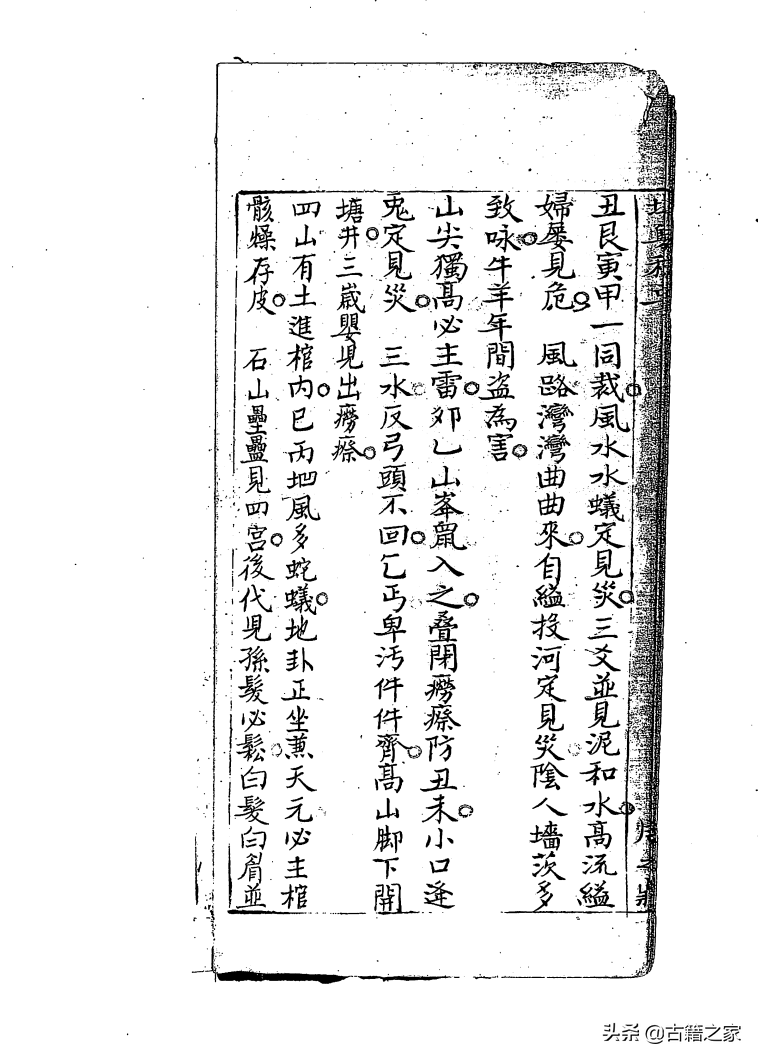 丑艮寅甲一同裁風水水蟻定見災三爻並見泥和水高流縊
婦屡見危　風路灣灣曲曲來自縊投河定見災陰人墻茨多
致咏牛羊年間盗為害
山尖獨高必主雷夘乙山峯鼠入之叠閉癆瘵防丑未小口逢
兎定見災　三水反弓頭不回乙丐卑污件件齊高山脚下開
塘井三嵗嬰児出癆瘵
四山有土進棺内巳丙地風多蛇蟻地卦正坐蕙天元必主棺
骸燥存皮　石山壘叠見四宫後代児孫髮必鬆白髮白眉並
头条 @古籍之家